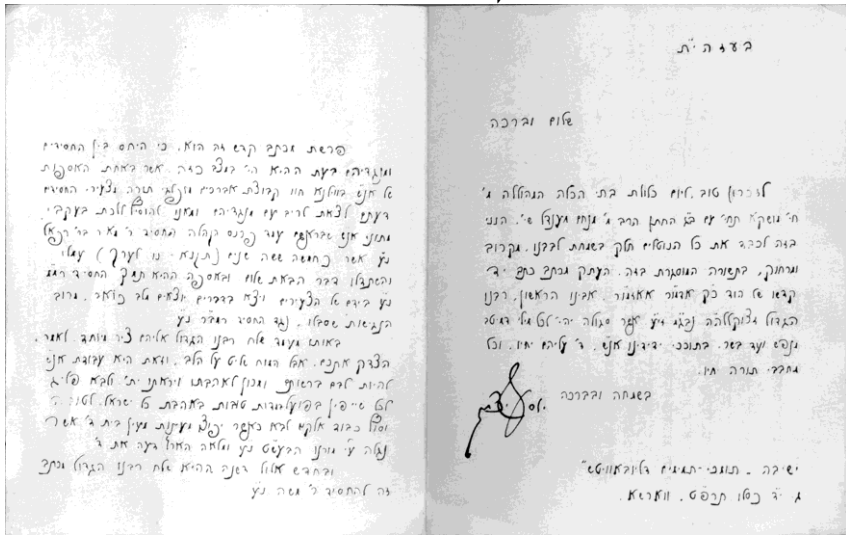 בעזה״ת
שלום וברכה
לזכרון טוב, ליום כלולת בתי הכלה המהוללה מ׳
חי׳ מושקא תחי׳ עם ב״ג החתן הרב מ׳ מנחם מענדל שי׳, הנני
בזה לכבד את כל הנוטלים חלק בשמחת לבבנו, מקרוב
ומרחוק, בתשורה המוסגרת בזה, העתק מכתב כתב יד
קדשו של הוד כ״ק אדמו״ר אאזמו״ר, אבינו הראשון, רבנו
הגדול זצוקללה״ה נבג״מ זי״ע אשר סגולה יהי׳ לכל מילי דמיטב
מנפש ועד בשר, בתוככי ידידינו אנ״ש, ד׳ עליהם יחיו, וכל
מחבבי תורה חיו.
בשמחה ובברכה
ישיבה ״תומכי-תמימים דליובאוויטש״
ג׳ י״ד כסלו תרפ״ט, ווארשא.
פרשת מכתב קדש זה הוא, כי היחס בין החסידים
ומנגדיהם בעת ההיא הי׳ במצב כזה, אשר באחת האספות
של אנ״ש בווילנא חוו קבוצת אברכים מופלגי תורה מצעירי החסידים
דעתם לצאת לריב עם מנגדיהם ומאנו להוסיף ללכת בעקבי
מתוני אנ״ש שבראשם עמד פרנס הקהלה החסיד ר׳ מאיר בר׳ רפאל
נ״ע אשר כחמשה ששה שנים (תקנ״א - נו לערך) עמלו
והשתדלו דבר הבאת שלום ובאספה ההיא תמך החסיד
נ״ע בידם של הצעירים ויצא בדברים יוצאים מלב כואב, מרוב
הנגישות שסבלו, נגד החסיד רמב״ר נ״ע
באותו מעמד שלח רבנו הגדול אליהם ציר מיוחד, לאמר,
הצדק אתכם, אבל המוח שליט על הלב, וזאת היא עבודת אנ״ש
להיות לבם ברשותם ומכוון לאהבתו ויראתו ית׳
וסוף כבוד אלקים לבא כאשר יפוצו מעינות מעין בית ד׳ אשר
נגלה ע״י מורנו הבעש״ט נ״ע ומלאה הארץ דעה את ד׳
ובחדש אלול דשנה ההיא שלח רבנו הגדול מכתב
זה להחסיד ר׳ משה נ״ע